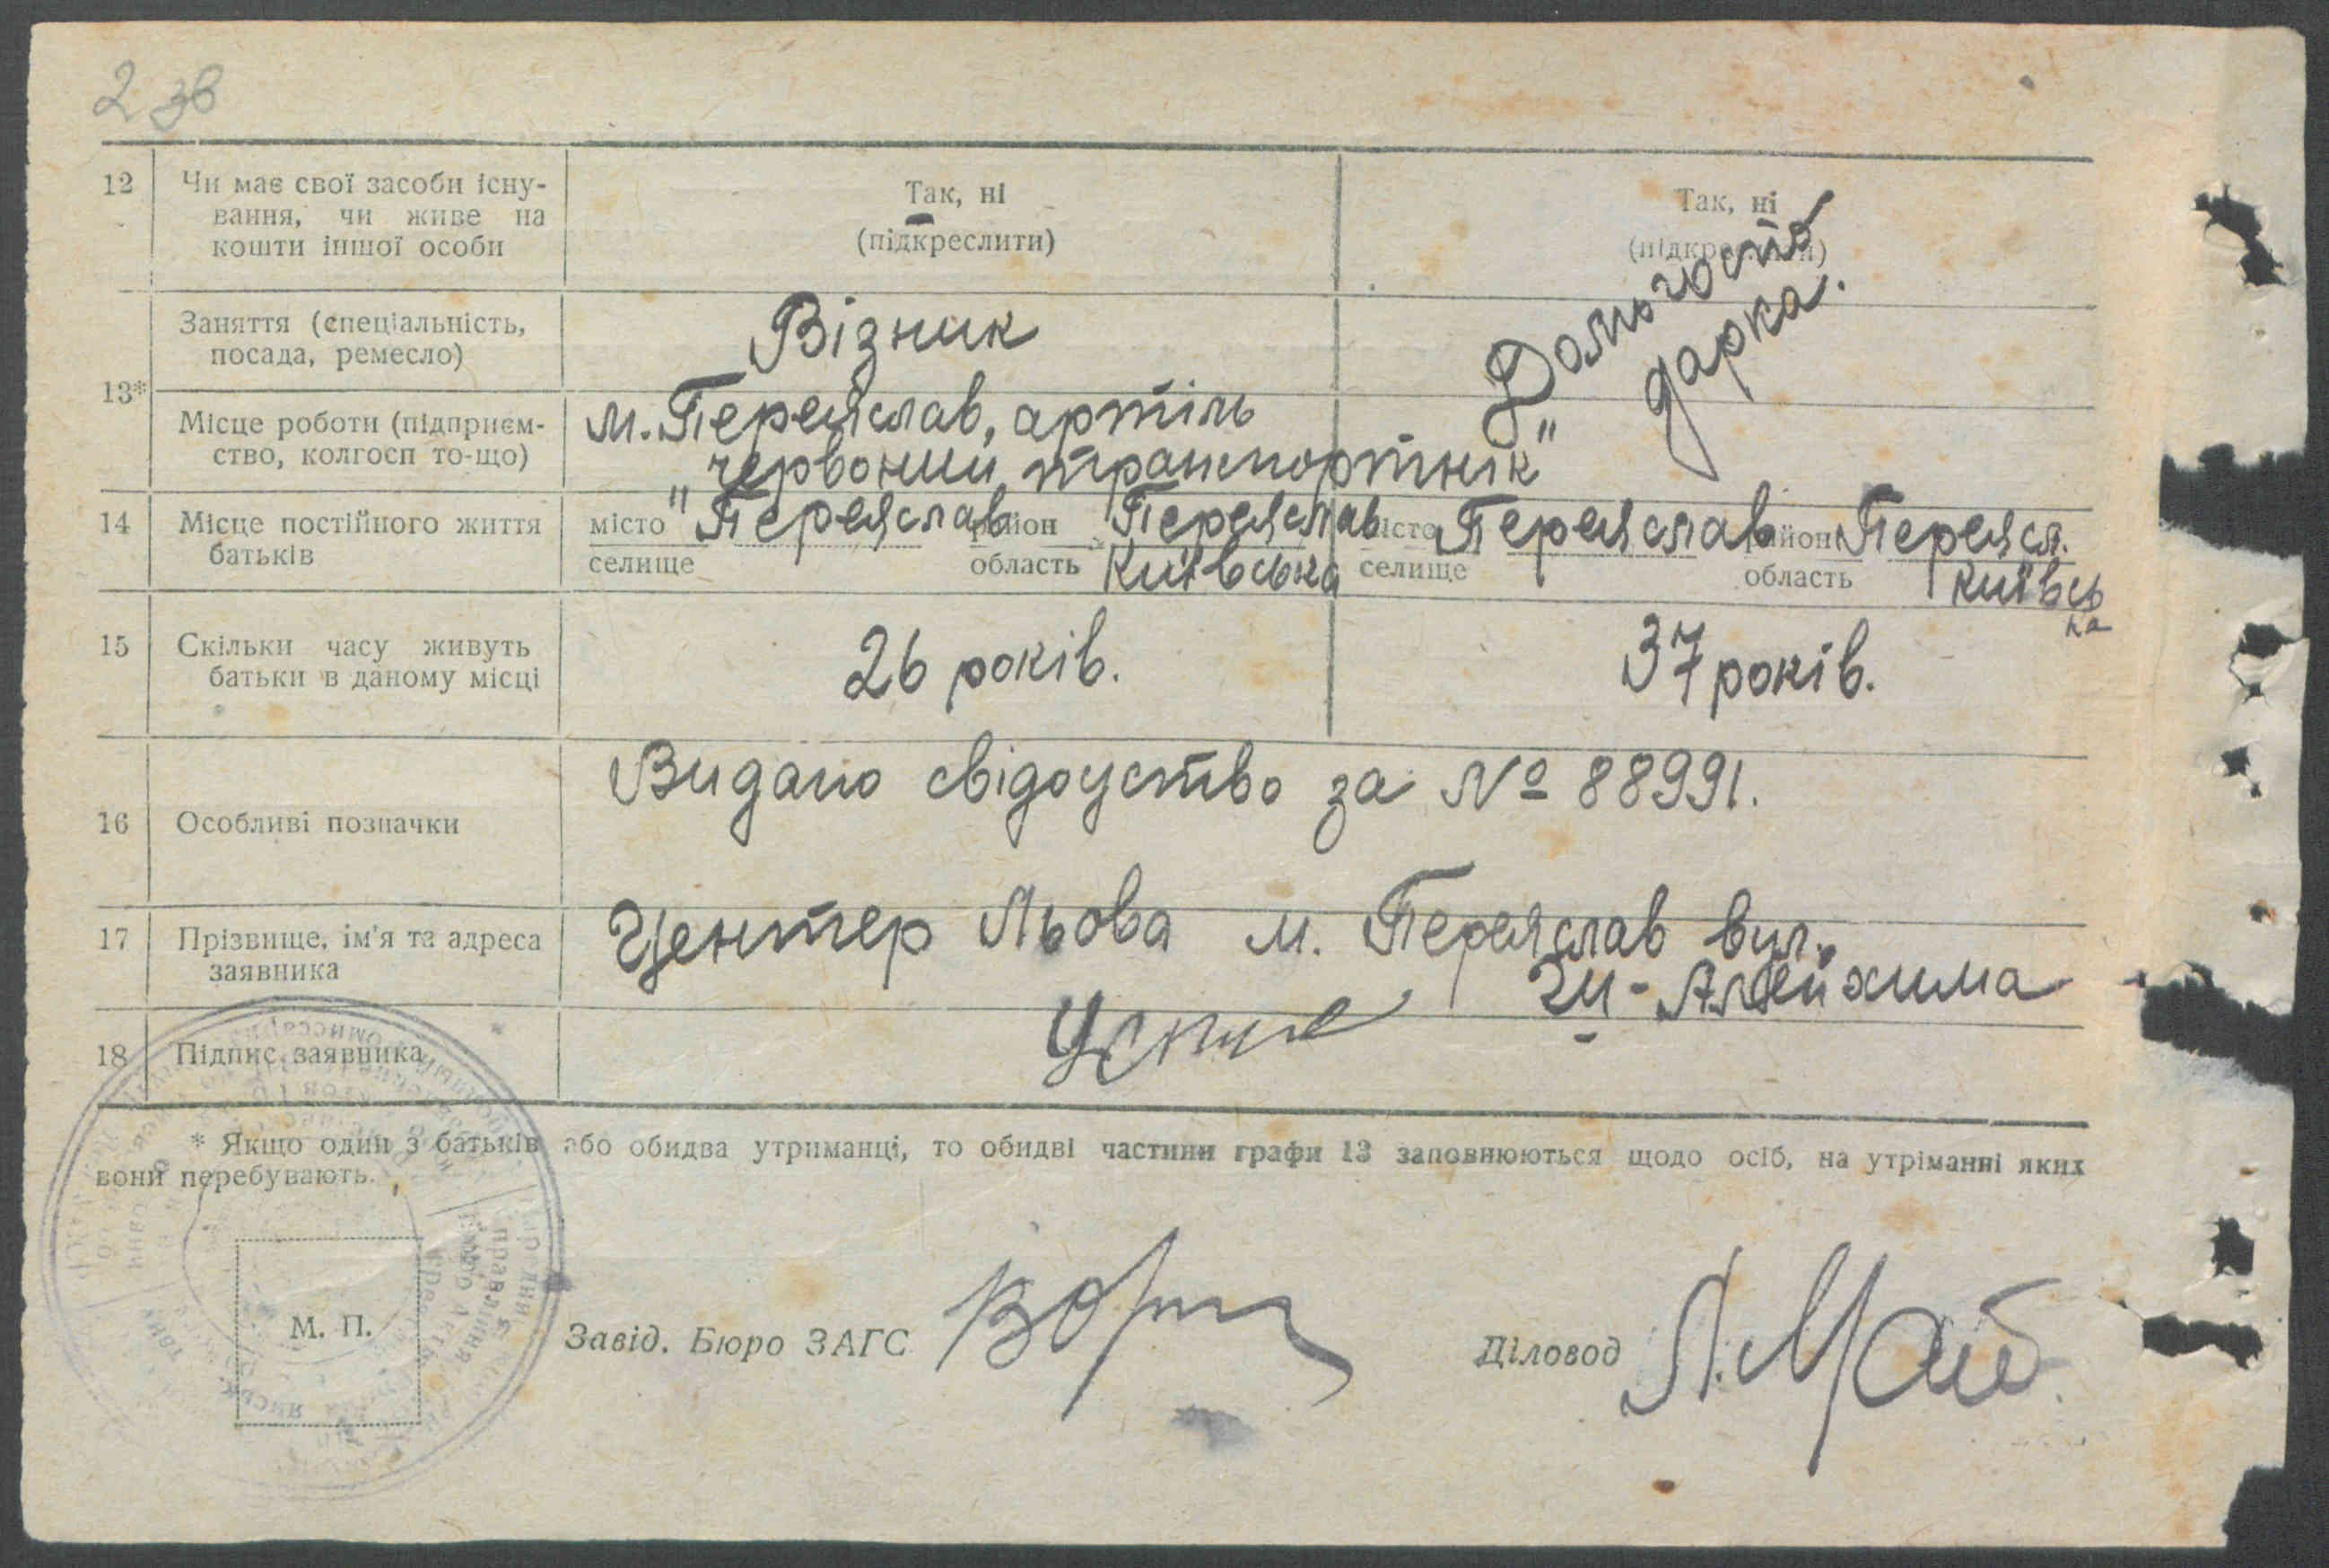 2 зв
12 Чи має свої засоби існу-
вання, чи живе на
кошти іншої особи
Так, ні
(підкреслити)
Так, ні
(підкреслити)
13*
Заняття (спеціальність,
посада, ремесло)
Візник
Домогоспо
дарка.
Місце роботи (підприєм-
ство, колгосп то-що)
м. Переяслав, артіль
"червоний транспортнік"
14 Місце постійного життя
батьків
місто Переяслав район Переяслав
селище область Київська
місто Переяслав район Переясл.
селище область Київсь
ка
15 Скільки часу живуть
батьки в даному місці
26 років.
37 років.
16 Особливі позначки
Видано свідоцтво за № 88991.
17 Прізвище, ім'я та адреса
заявника
Центер Льова м. Переяслав вул.
Ш-Алейхима
18 Підпис заявника
* Якщо один з батьків або обидва утриманці, то обидві частини графи 13 заповнюються щодо осіб, на утріманні яких
вони перебувають.
М. П.
Завід. Бюро ЗАГС
Діловод